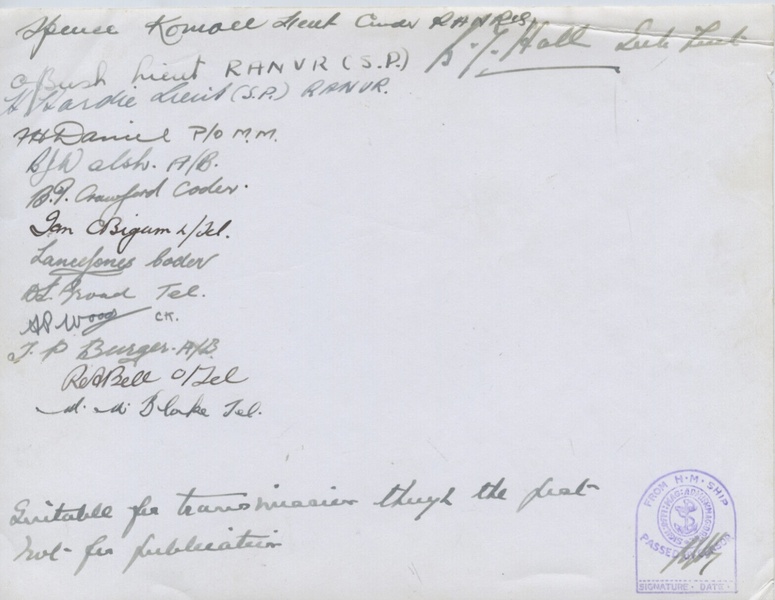 Spence Komoll Lieut Cmdr RANR(S).
B. J. Hall Sub Lieut
C Bush Lieut RANVR (S.P.)
H Hardie Lieut (S.P.) RANVR.
H Daniel P/O M.M.
B J Walsh. A/B.
B.J. Crawford Coder.
Ian C Bigum L/Tel.
Lance Jones Coder
Tel.
Wong CK.
J. P Burger. A/B
R A Bell O/Tel
Blake Tel.
Suitable for transmission though the post
Not for publication
FROM H·M·SHIP
PASSED
SIGNATURE · DATE ·